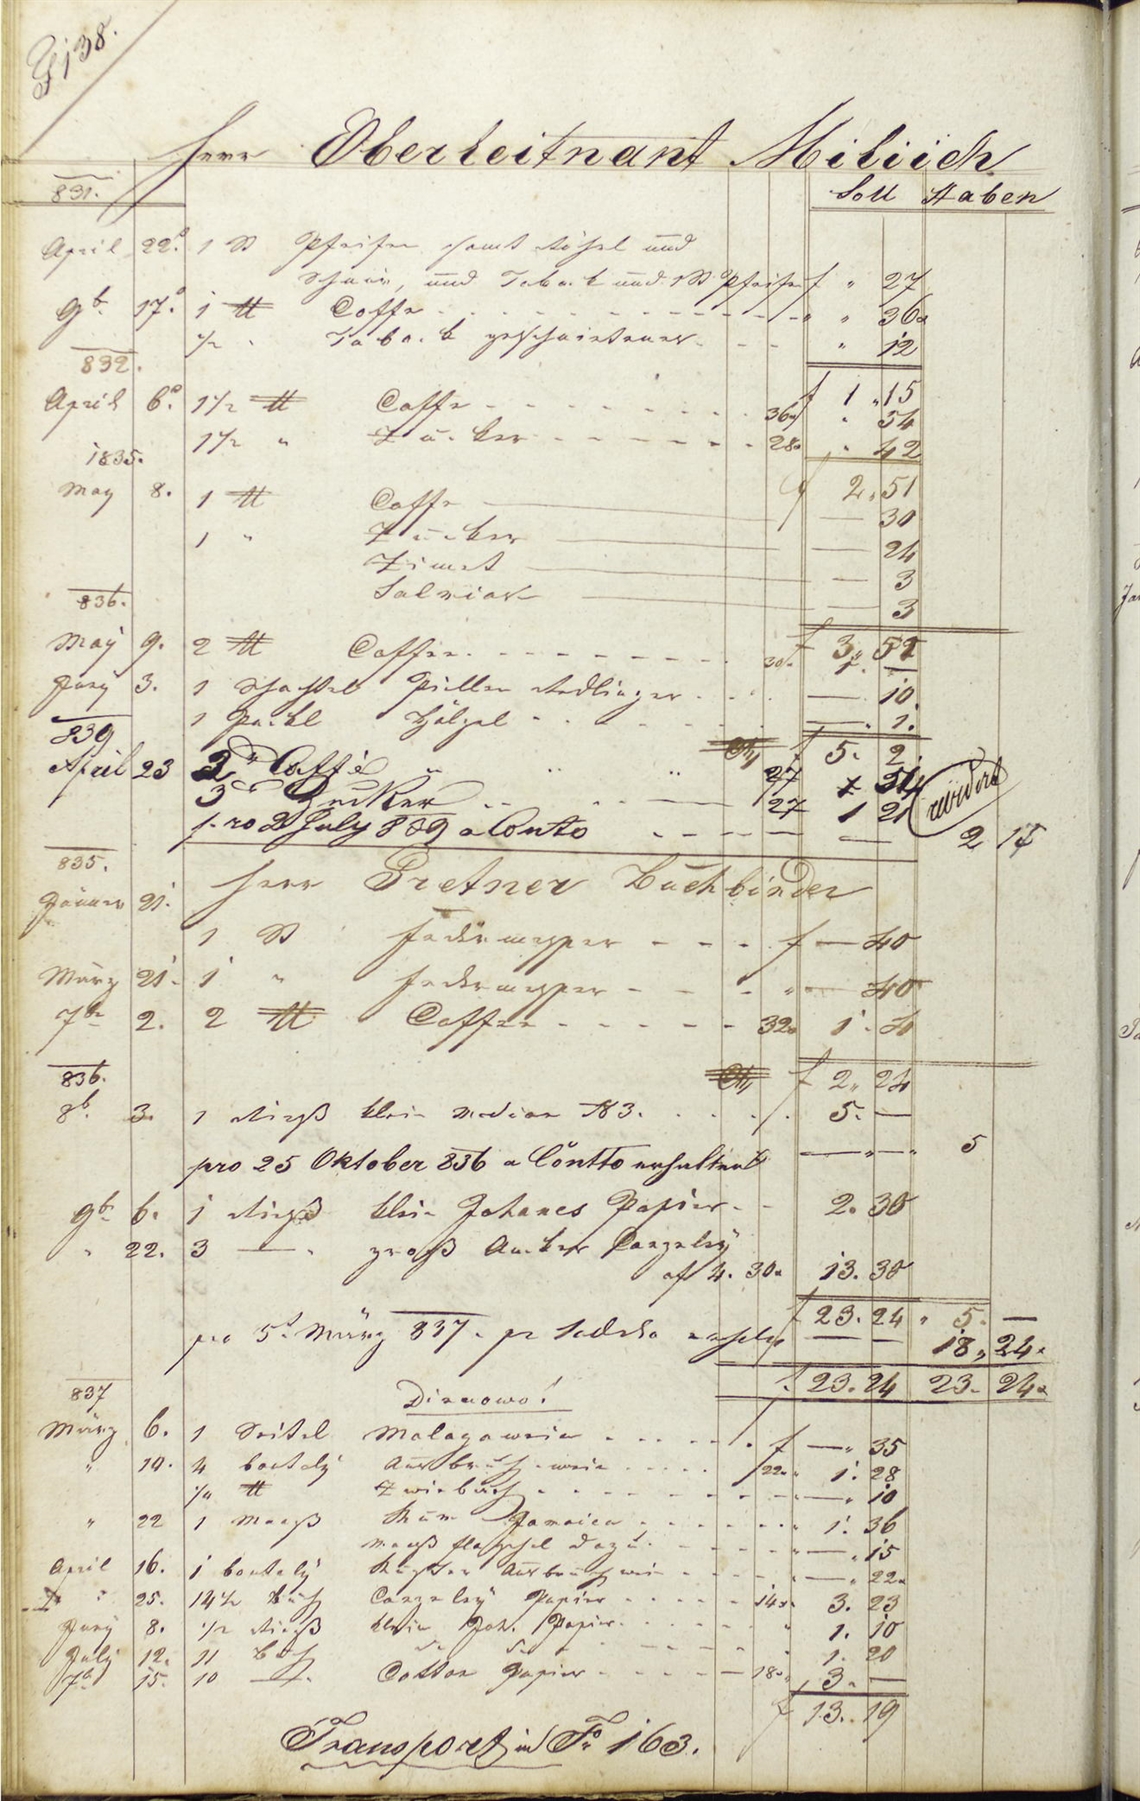 138.
Herr Oberleitnant Milicich
831.
Soll Haben
April 22. 1 St Pfeifen samt Röhrl und
Schnur, und Tabak und 1 St Pfeifen f " 27
9br 17. 1 ℔ Coffe " " 36
1/2 " Taback geschnittener " 12
832.
f 1 " 15
April 6. 1 1/2 ℔ Coffe 36 " 54
1 1/2 " Zucker 28 " 42
1835.
f 2 " 51
May 8. 1 ℔ Coffe — 30
1 " Zucker — 24
Zimet — 3
Salniak — 3
836.
f 3 " 51
May 9. 2 ℔ Coffee 30 1. —
Juny 3. 1 Schachtel Pillen Redlinger — 10.
1 Packl Hölzel — 1.
839
f 5. 2
April 23 2 " Caffé 27 54
3 Zucker 27 1 21
pro 2 July 839 a Conto — 2 17
835.
Herr Pretner Buchbinder
Jänner 21. 1 St Federmesser f — 40
März 21. 1 " Federmesser " — 40
7br 2. 2 ℔ Coffee 32 1. 4
836.
f 2 " 24
8br 3. 1 Rieß klein Median N 3. 5. —
pro 25 Oktober 836 a Contto erhalten — 5
9br 6. 1 Rieß klein Johanes Papier 2. 30
" 22. 3 — " groß Anker Canzeley
af 4. 30 13. 30
f 23. 24 " 5. —
pro 5t. März 837. pr 18 " 24
f 23. 24 23. 24
837
Diemowo!
März 6. 1 Seitel Malagawein f — " 35
" 14. 4 boutely Ausbruchwein 22 1. 28
1/4 ℔ Zwieback — " 10
" 22 1 Maaß Rum Jamaica 1. 36
Maaß flaschel dazu — " 15
April 16. 1 boutely Ruster Ausbruchwein — " 22
" 25. 14 1/2 Buch Canzeley Papier 14 3. 23
Juny 8. 1/2 Rieß klein Joh. Papier 1. 10
July 12. 11 Buch 1. 20
7br 15. 10 — " Cotton Papier 18 3. —
f 13. 19
Transport in Fo 163.